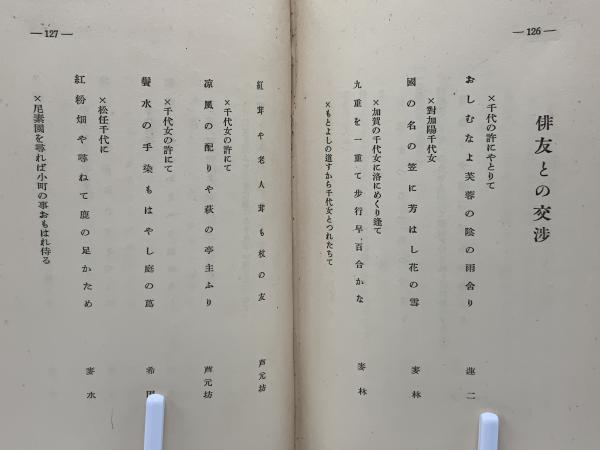 —126—
俳友との交渉
×千代の許にやとりて
おしむなよ芙蓉の陰の雨舍り 蓮二
×對加陽千代女
國の名の笠に芳はし花の雪 麥林
×加賀の千代女に洛にめくり逢て
九重を一重て步行早百合かな 麥林
×もとよしの道すから千代女とつれたちて
—127—
紅茸や老人茸も杖の友 芦元坊
×千代女の許にて
凉風の配りや萩の亭主ふり 芦元坊
×千代女の許にて
鬢水の手染もはやし庭の萵 希
×松任千代に
紅粉畑や尋ねて鹿の足かため 麥水
×尼素園を尋れば小町の事おもはれ侍る